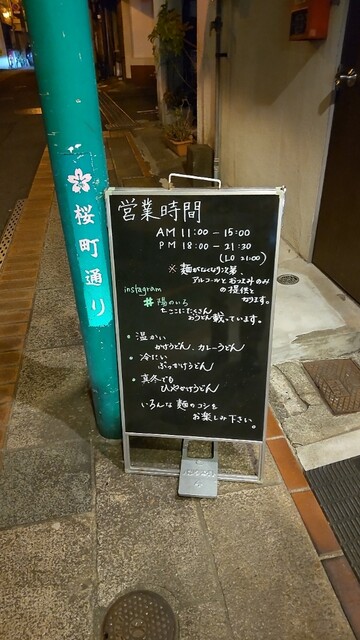 桜町通り
営業時間
AM 11:00 - 15:00
PM 18:00 - 21:30
(LO 21:00)
※ 麺がなくなり次第、
アルコールとおつまみのみ
の提供と
なります。
instagram
#陽のいろ
たこにたくさん
おうどん載っています。
・温かい
かけうどん、カレーうどん
・冷たい
ぶっかけうどん
・真冬でも
ひやかけうどん
いろんな麺のコシを
お楽しみ下さい。